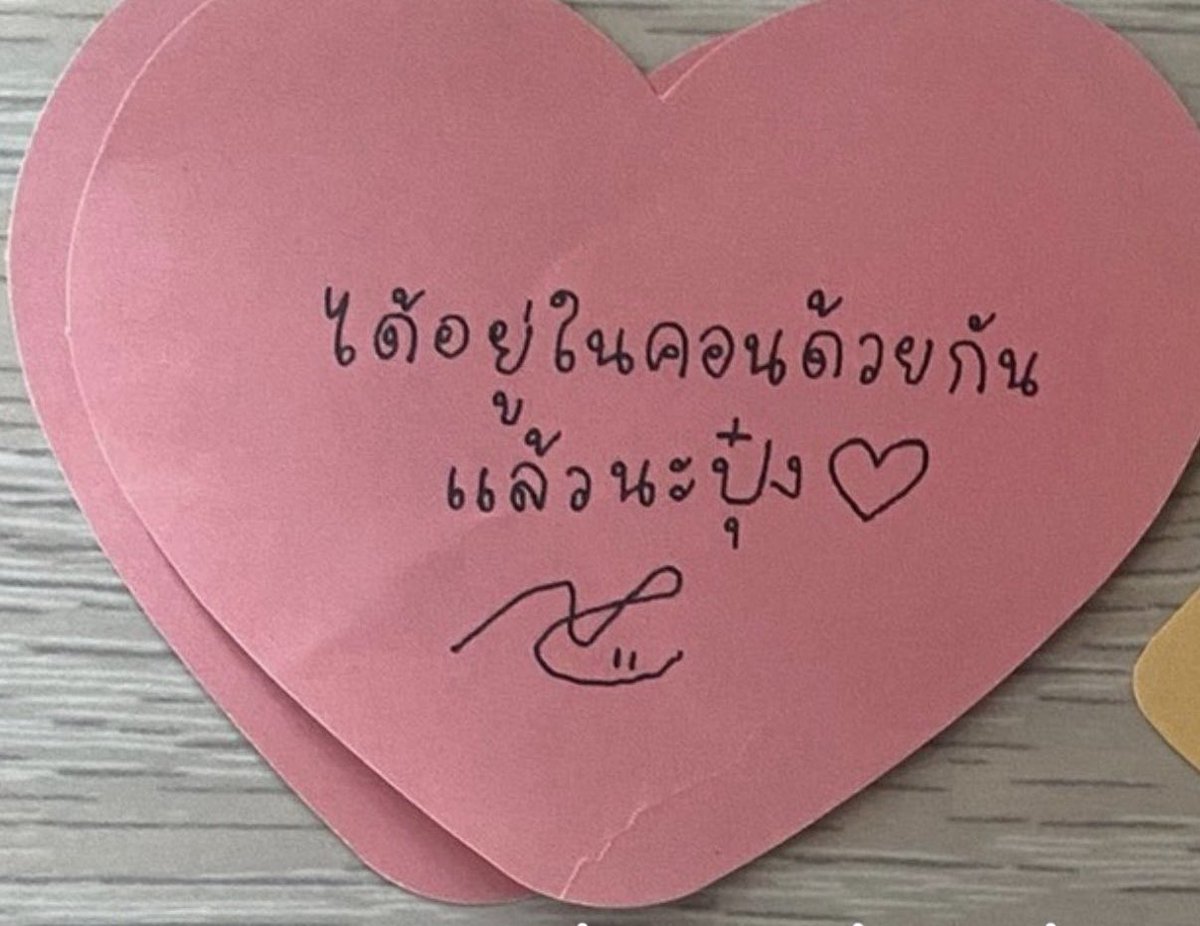 ได้อยู่ในคอนด้วยกัน
แล้วนะปุ๋ง♡